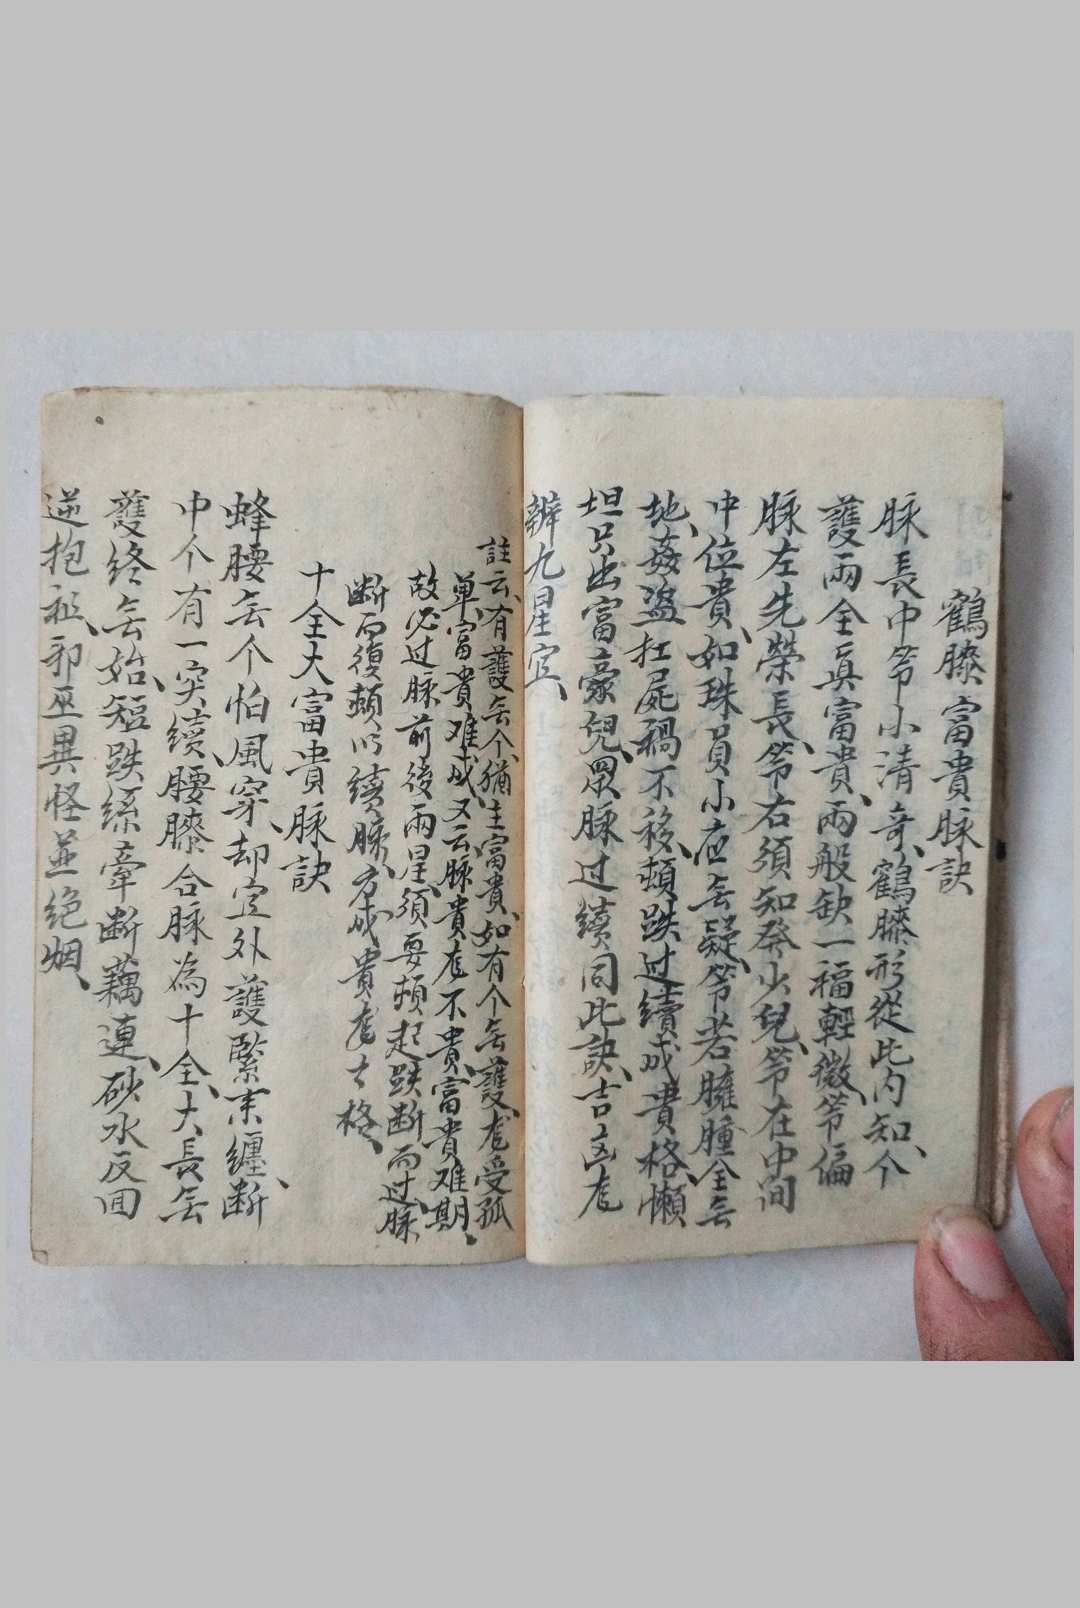 鶴膝富貴脉訣
脉長中笭小清奇、鶴膝形從此内知、个
護兩全真富貴、兩般缺一福輕微、笭偏
脉左先榮長、笭右須知發少兒、笭在中间
中位貴、如珠員小应𠂉疑、笭若臃腫全𠂉
地、姦盜扛屍禍不移、頓跌过續成貴格、懶
坦只出富豪兒、眾脉过續同此訣、吉凶尨
辨九星宜、
註云、有護𠂉个猶主富貴、如有个𠂉護、尨受孤
单、富貴难成、又云、脉貴尨不貴、富貴难期、
故必过脉前後兩星、須要頓起跌断而过脉
断而復頓以續脉、方成貴尨之格、
十全大富貴脉訣
蜂腰𠂉个怕風穿、却宜外護緊来纒、断
中个有一突續、腰膝合脉為十全、大長𠂉
護終𠂉始、短跌絲牽断藕連、砂水反囬
逆抱祖、邪巫異怪並绝烟、